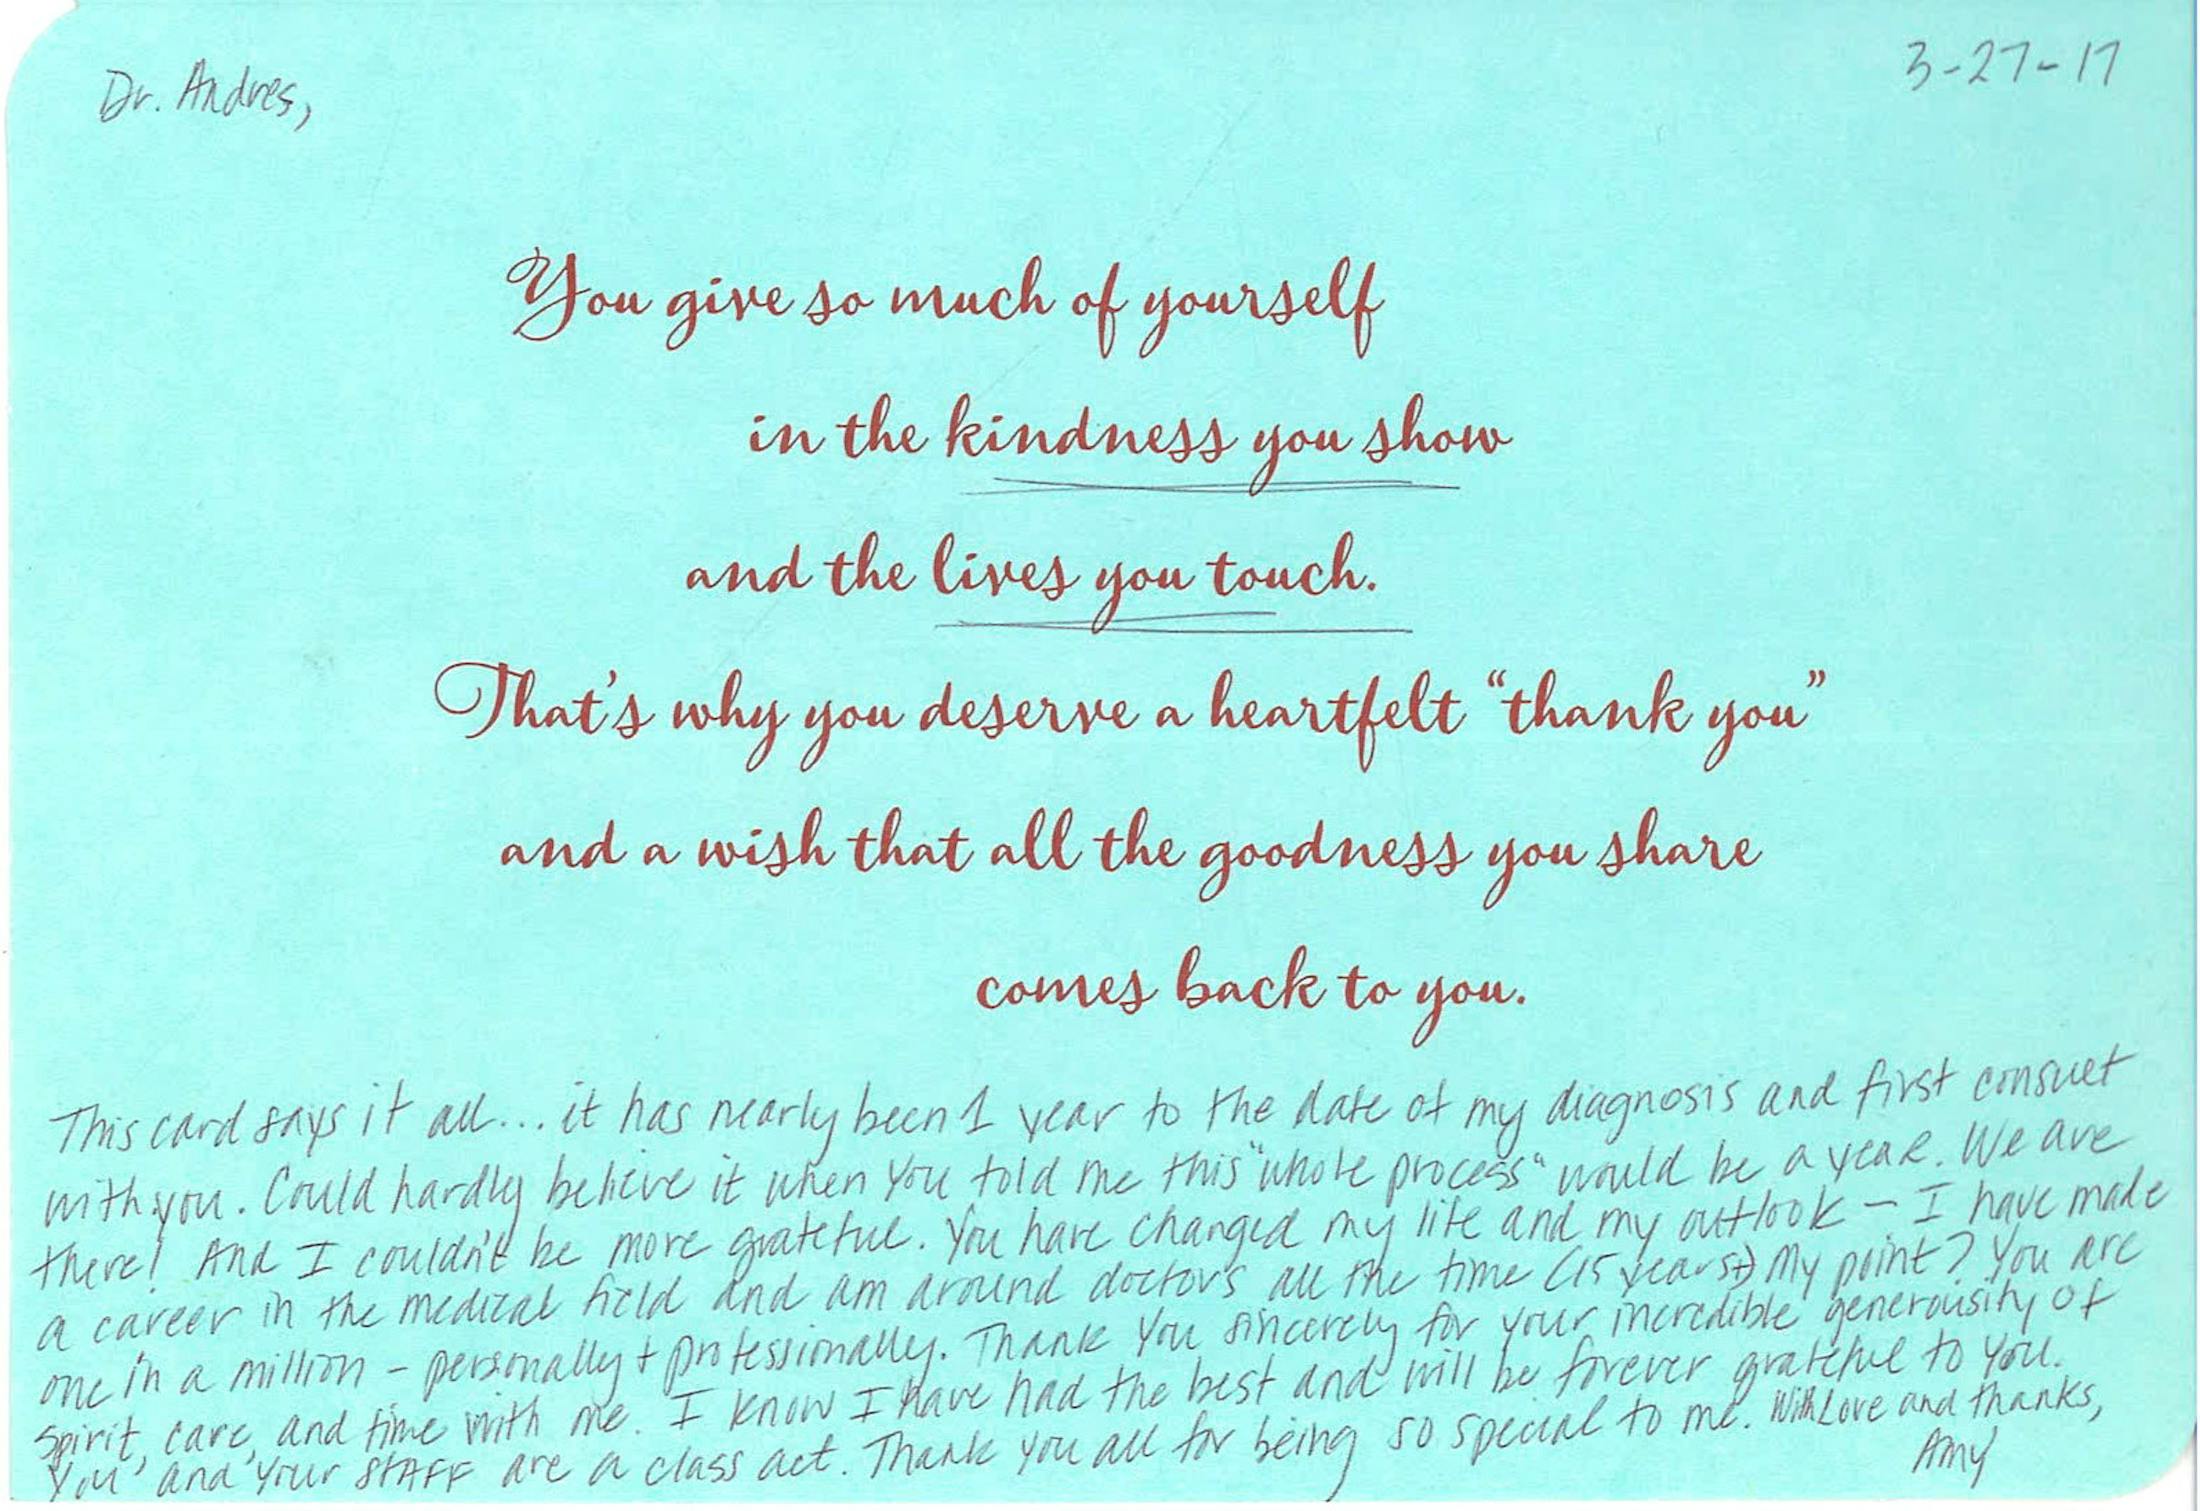 Dr. Andres,
3-27-17
You give so much of yourself
in the kindness you show
and the lives you touch.
That's why you deserve a heartfelt “thank you”
and a wish that all the goodness you share
comes back to you.
This card says it all... it has nearly been 1 year to the date of my diagnosis and first consult
with you. Could hardly believe it when you told me this "whole process" would be a year. We are
there! And I couldn't be more grateful. You have changed my life and my outlook – I have made
a career in the medical field and am around doctors all the time (15 years+) My point? You are
one in a million – personally + professionally. Thank you sincerely for your incredible generousity of
spirit, care, and time with me. I know I have had the best and will be forever grateful to you.
You and your STAFF are a class act. Thank you all for being so special to me. With Love and thanks,
Amy